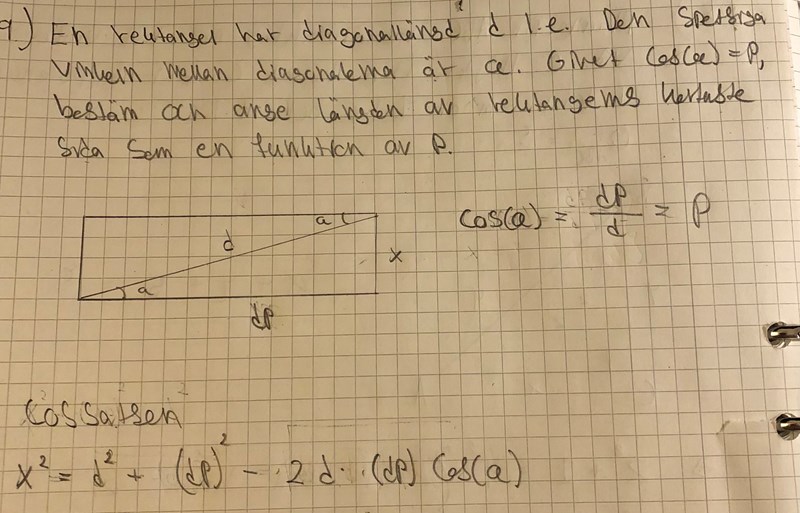 9.) En rektangel har diagonallängd d l.e. Den spetsiga
vinkeln mellan diagonalerna är a. Givet Cos(a) = P,
bestäm och ange längden av rektangelns kortaste
sida som en funktion av P.
a
d
x
a
dP
Cos(a) = dP/d = P
Cossatsen
x² = d² + (dP)² - 2d · (dP) Cos(a)